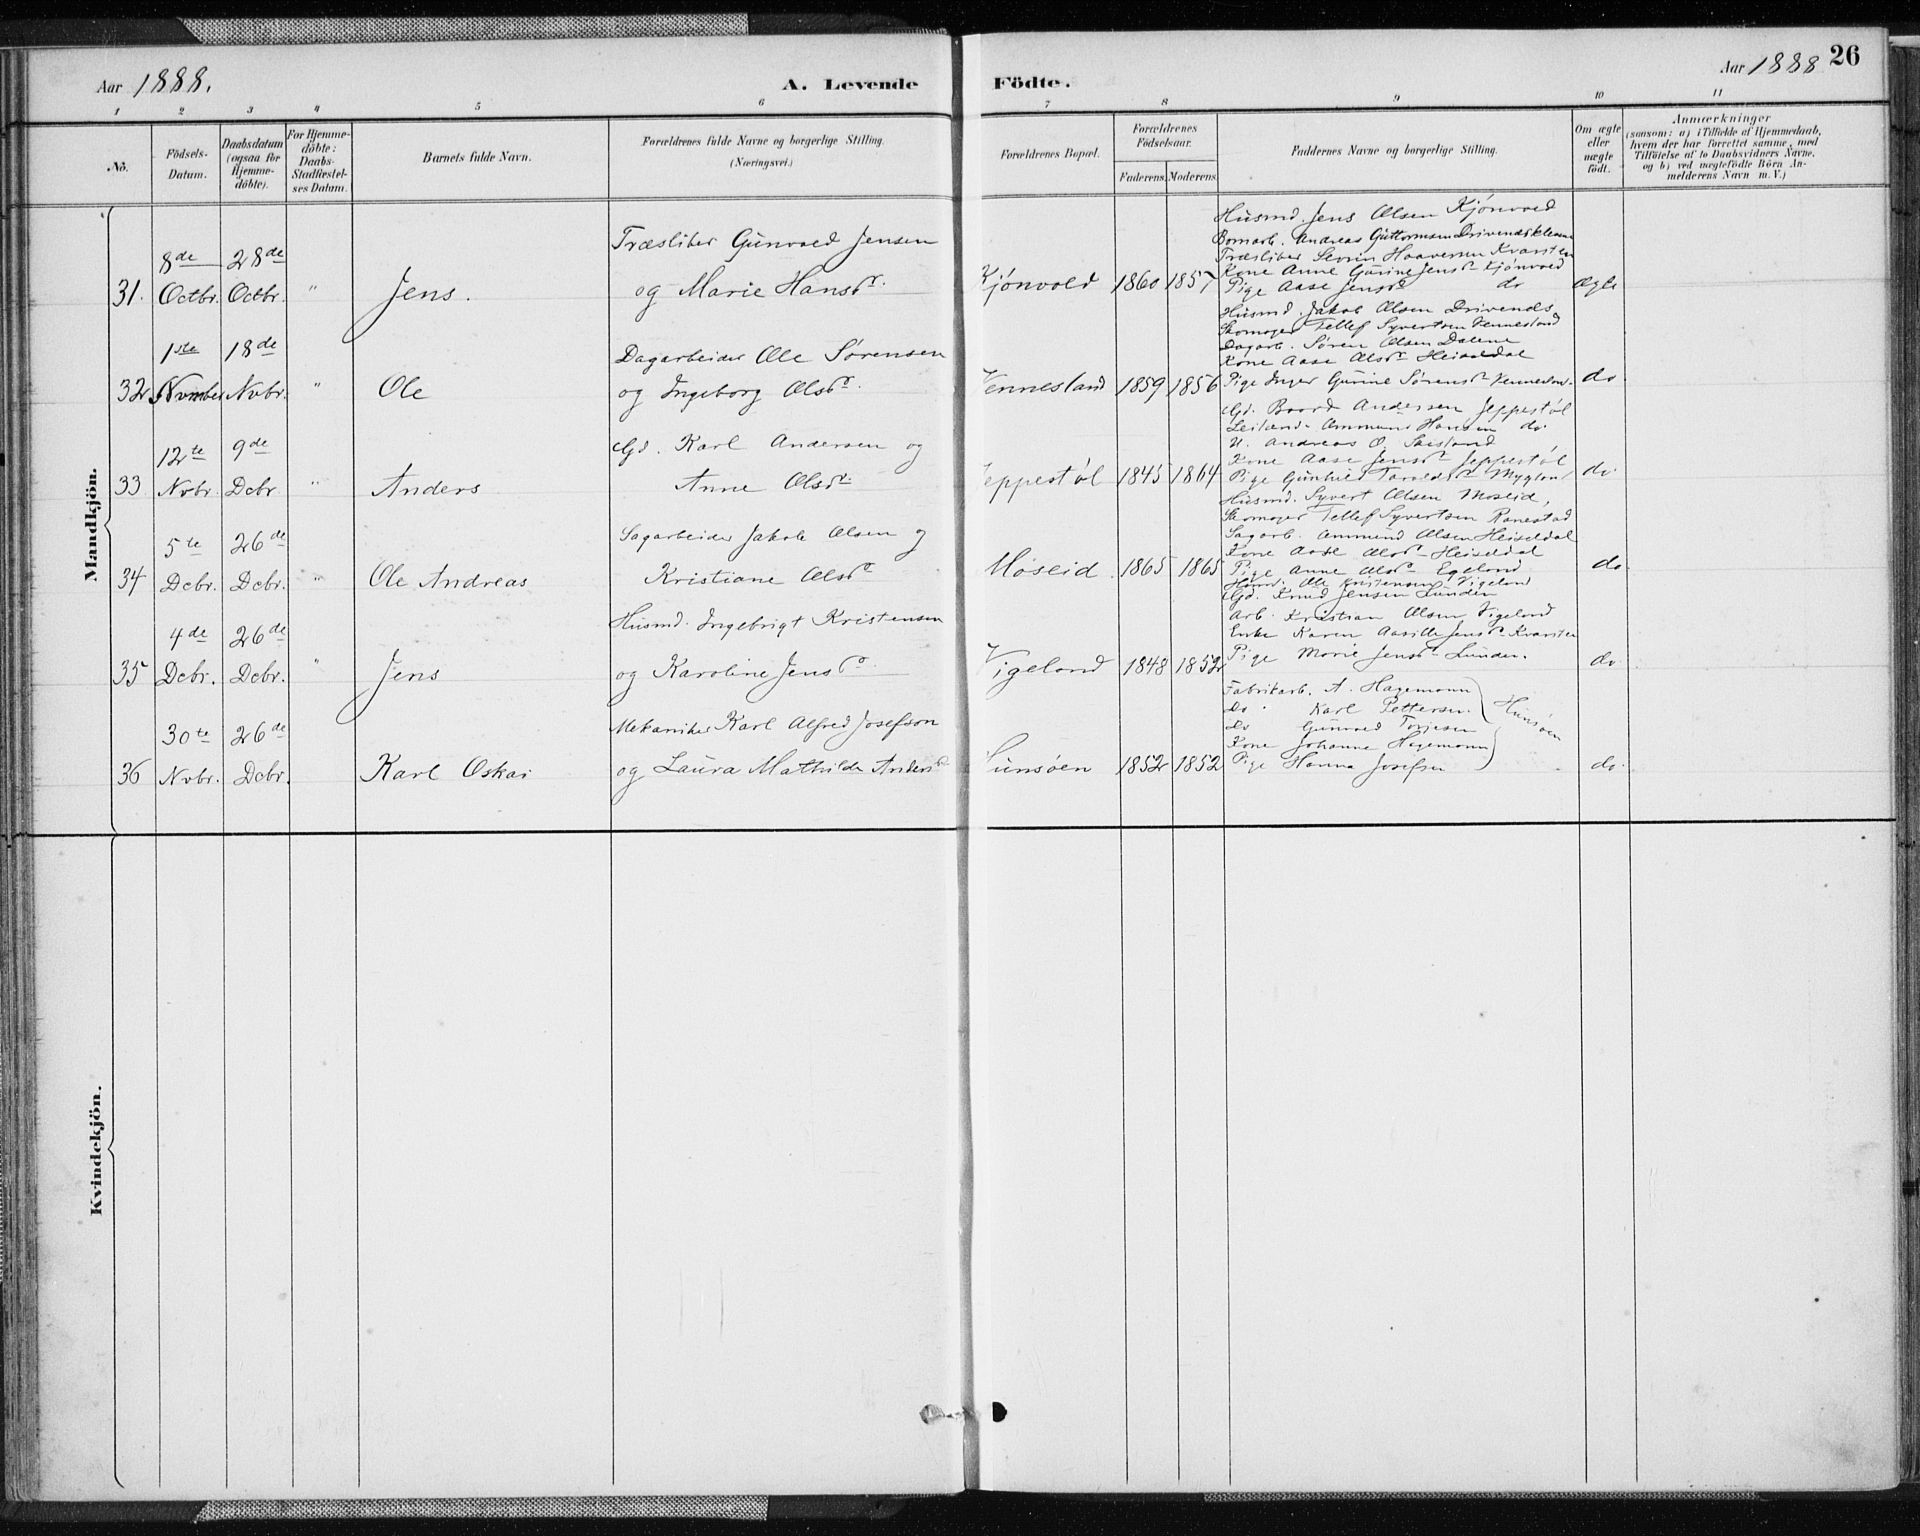 Aar 1888.
A. Levende Födte.
Aar 1888
26
1 2 3 4 5 6 7 8 9 10 11
No.
Födsels-
Datum.
Daabsdatum
(ogsaa for
Hjemme-
döbte).
For Hjemme-
döbte:
Daabs-
Stadfæstel-
ses Datum.
Barnets fulde Navn.
Forældrenes fulde Navne og borgerlige Stilling.
(Næringsvei.)
Forældrenes Bopæl.
Forældrenes
Födselsaar.
Faderens. Moderens.
Faddernes Navne og borgerlige Stilling.
Om ægte
eller
uægte
födt.
Anmærkninger
(saasom: a) i Tilfælde af Hjemmedaab,
hvem der har forrettet samme, med
Tilföielse af to Daabsvidners Navne,
og b) ved uægtefödte Börn An-
melderens Navn m. V.)
Mandkjön.
31.
8de
Octbr.
28de
Octbr.
"
Jens.
Træsliber Gunvald Jensen
og Marie Hansdr.
Kjønvold
1860 1857
Husmd. Jens Olsen Kjønvold
Bomarb. Andreas Guttormsen Drivendsklevene
Træsliber Severin Haaversen Kvarsten
Kone Anne Gurine Jensdr Kjønvold
Pige Aase Jensdr do
Ægte
32
1ste
Nvmber
18de
Nvbr.
"
Ole
Dagarbeider Ole Sørensen
og Ingeborg Olsdr.
Vennesland
1859 1856
Husmd. Jakob Olsen Drivends
Skomager Tellef Syvertsen Vennesland
Dagarb. Søren Olsen Dalene
Kone Aase Olsdr Heiseldal
Pige Inger Gurine Sørensdr Venneslnd.
do.
33
12te
Nvbr.
9de
Dcbr
"
Anders
Gd. Karl Andersen og
Anne Olsdr.
Jeppestøl
1845 1864
Gd. Baard Andersen Jeppestøl
Leilænd. Ommund Hansen do.
U. Andreas O.
Kone Aase Jensdr Jeppestøl
Pige Gunhild
do
34
5te
Dcbr.
26de
Dcbr.
"
Ole Andreas
Sagarbeider Jakob Olsen og
Kristiane Olsdr
Moseid.
1865 1865
Husmd. Syvert Olsen Moseid,
Skomager Tellef Syvertsen Ranestad
Sagarb. Ommund Olsen Heiseldal
Kone Aase Olsdr Heiseldal
Pige Anne Olsdr Egeland
do.
35
4de
Dcbr.
26de
Dcbr.
"
Jens
Husmd. Ingebrigt Kristensen
og Karoline Jensdr.
Vigeland
1848 1852
Husmd. Ole Kristensen Vigeland
Gd. Knud Jensen Lunden
Arb. Kristian Olsen Vigeland
Enke Karen Aasille Jensdr Kvarsten
Pige Marie Jensdr Lunden.
do
36
30te
Nvbr.
26de
Dcbr.
Karl Oskar
Mekaniker Karl Alfred Josefson
og Laura Mathilde Andersd
Hunsøen
1852 1852
Fabrikarb. A. Hagemann
Do. Karl Pettersen
Do Gunvald Torjesen
Kone Johanne Hagemann
Pige Hanna Josefsen
Hunsøen
do.
Kvindekjön.